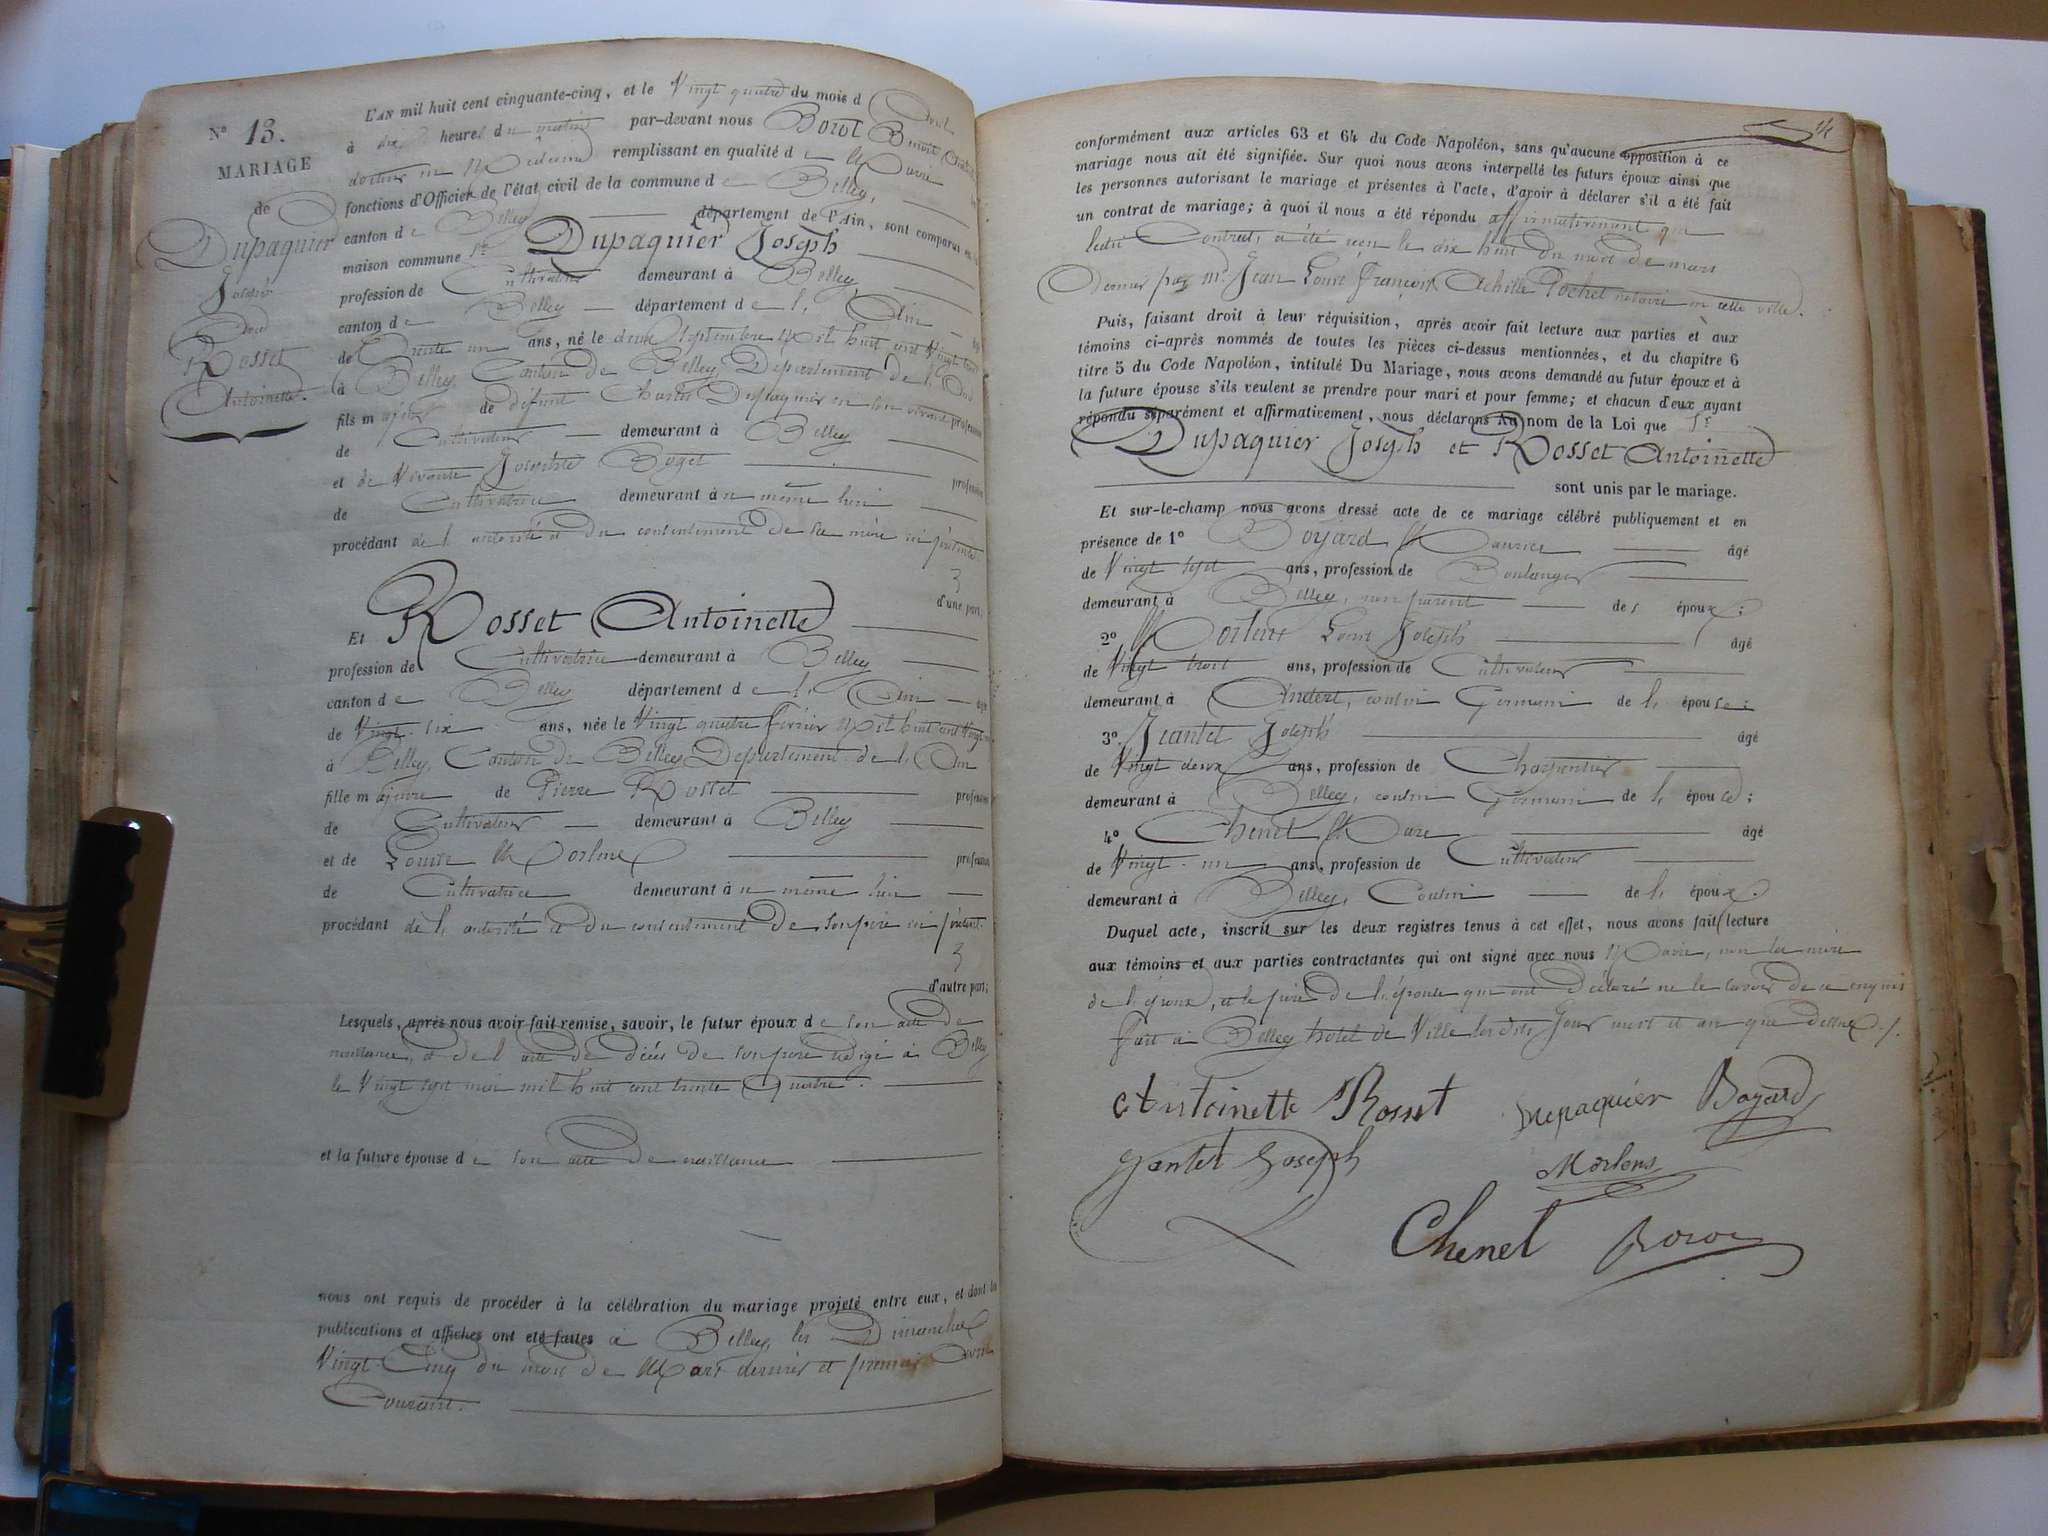 N° 13.
MARIAGE
de
Dupaquier
Joseph
avec
Rosset
Antoinette.
L'AN mil huit cent cinquante-cinq, et le Vingt quatre du mois d'Avril
à dix heures du matin par-devant nous Borot Benoit
docteur en Médecine remplissant en qualité de Maire
fonctions d'Officier de l'état civil de la commune de Belley,
canton de Belley département de l'Ain, sont comparus en la
maison commune Sr Dupaquier Joseph
profession de Cultivateur demeurant à Belley,
canton de Belley département de l'Ain âgé
de Trente un ans, né le deux Septembre Mil huit cent Vingt trois
à Belley, Canton de Belley Département de l'Ain
fils majeur de défunt Charles Dupaquier en son vivant profession
de Cultivateur demeurant à Belley
et de Vivante Josephte Boget profession
de Cultivatrice demeurant à u même lieu
procédant de l'autorité et du consentement de sa mère ici présente
d'une part;
Et Rosset Antoinette
profession de Cultivatrice demeurant à Belley
canton de Belley département de l'Ain âgé
de Vingt-six ans, née le Vingt quatre février Mil huit cent Vingt neuf
à Belley, Canton de Belley Département de l'Ain
fille majeure de Pierre Rosset profession
de Cultivateur demeurant à Belley
et de Louise Morlens profession
de Cultivatrice demeurant à u même lieu
procédant de l'autorité et du consentement de son père ici présent.
d'autre part;
Lesquels, après nous avoir fait remise, savoir, le futur époux de son acte de
naissance, et de l'acte de décès de son père rédigé à Belley
le Vingt sept mai mil huit cent trente Quatre.
et la future épouse de son acte de naissance
nous ont requis de procéder à la célébration du mariage projeté entre eux, et dont les
publications et affiches ont été faites à Belley, les Dimanches
Vingt-Cinq du mois de Mars dernier et premier Avril
Courant.
conformément aux articles 63 et 64 du Code Napoléon, sans qu'aucune opposition à ce
mariage nous ait été signifiée. Sur quoi nous avons interpellé les futurs époux ainsi que
les personnes autorisant le mariage et présentes à l'acte, d'avoir à déclarer s'il a été fait
un contrat de mariage; à quoi il nous a été répondu affirmativement que
ledit Contrat, a été reçu le dix huit du mois de mars
Dernier par Me Jean Louis François Achille Pochet notaire en cette ville.
Puis, faisant droit à leur réquisition, après avoir fait lecture aux parties et aux
témoins ci-après nommés de toutes les pièces ci-dessus mentionnées, et du chapitre 6
titre 5 du Code Napoléon, intitulé Du Mariage, nous avons demandé au futur époux et à
la future épouse s'ils veulent se prendre pour mari et pour femme; et chacun d'eux ayant
répondu séparément et affirmativement, nous déclarons au nom de la Loi que Sr
Dupaquier Joseph et Rosset Antoinette
sont unis par le mariage.
Et sur-le-champ nous avons dressé acte de ce mariage célébré publiquement et en
présence de 1° Boyard Maurice âgé
de Vingt sept ans, profession de Boulanger
demeurant à Belley, non parent des époux;
2° Morlens Louis Joseph âgé
de Vingt trois ans, profession de Cultivateur
demeurant à Andert, cousin Germain de l'épouse;
3° Jeantet Joseph âgé
de Vingt deux ans, profession de Charpentier
demeurant à Belley, cousin Germain de l'épouse;
4° Chenel Marc âgé
de Vingt-un ans, profession de Cultivateur
demeurant à Belley, Cousin de l'époux.
Duquel acte, inscrit sur les deux registres tenus à cet effet, nous avons fait lecture
aux témoins et aux parties contractantes qui ont signé avec nous Maire, non la mère
de l'époux, et le père de l'épouse qui ont déclaré ne le savoir de ce enquis
fait à Belley hotel de Ville les dits Jour mois et an que dessus.
Antoinette Rosset Dupaquier Boyard
Jantet Joseph Morlens
Chenel Borot